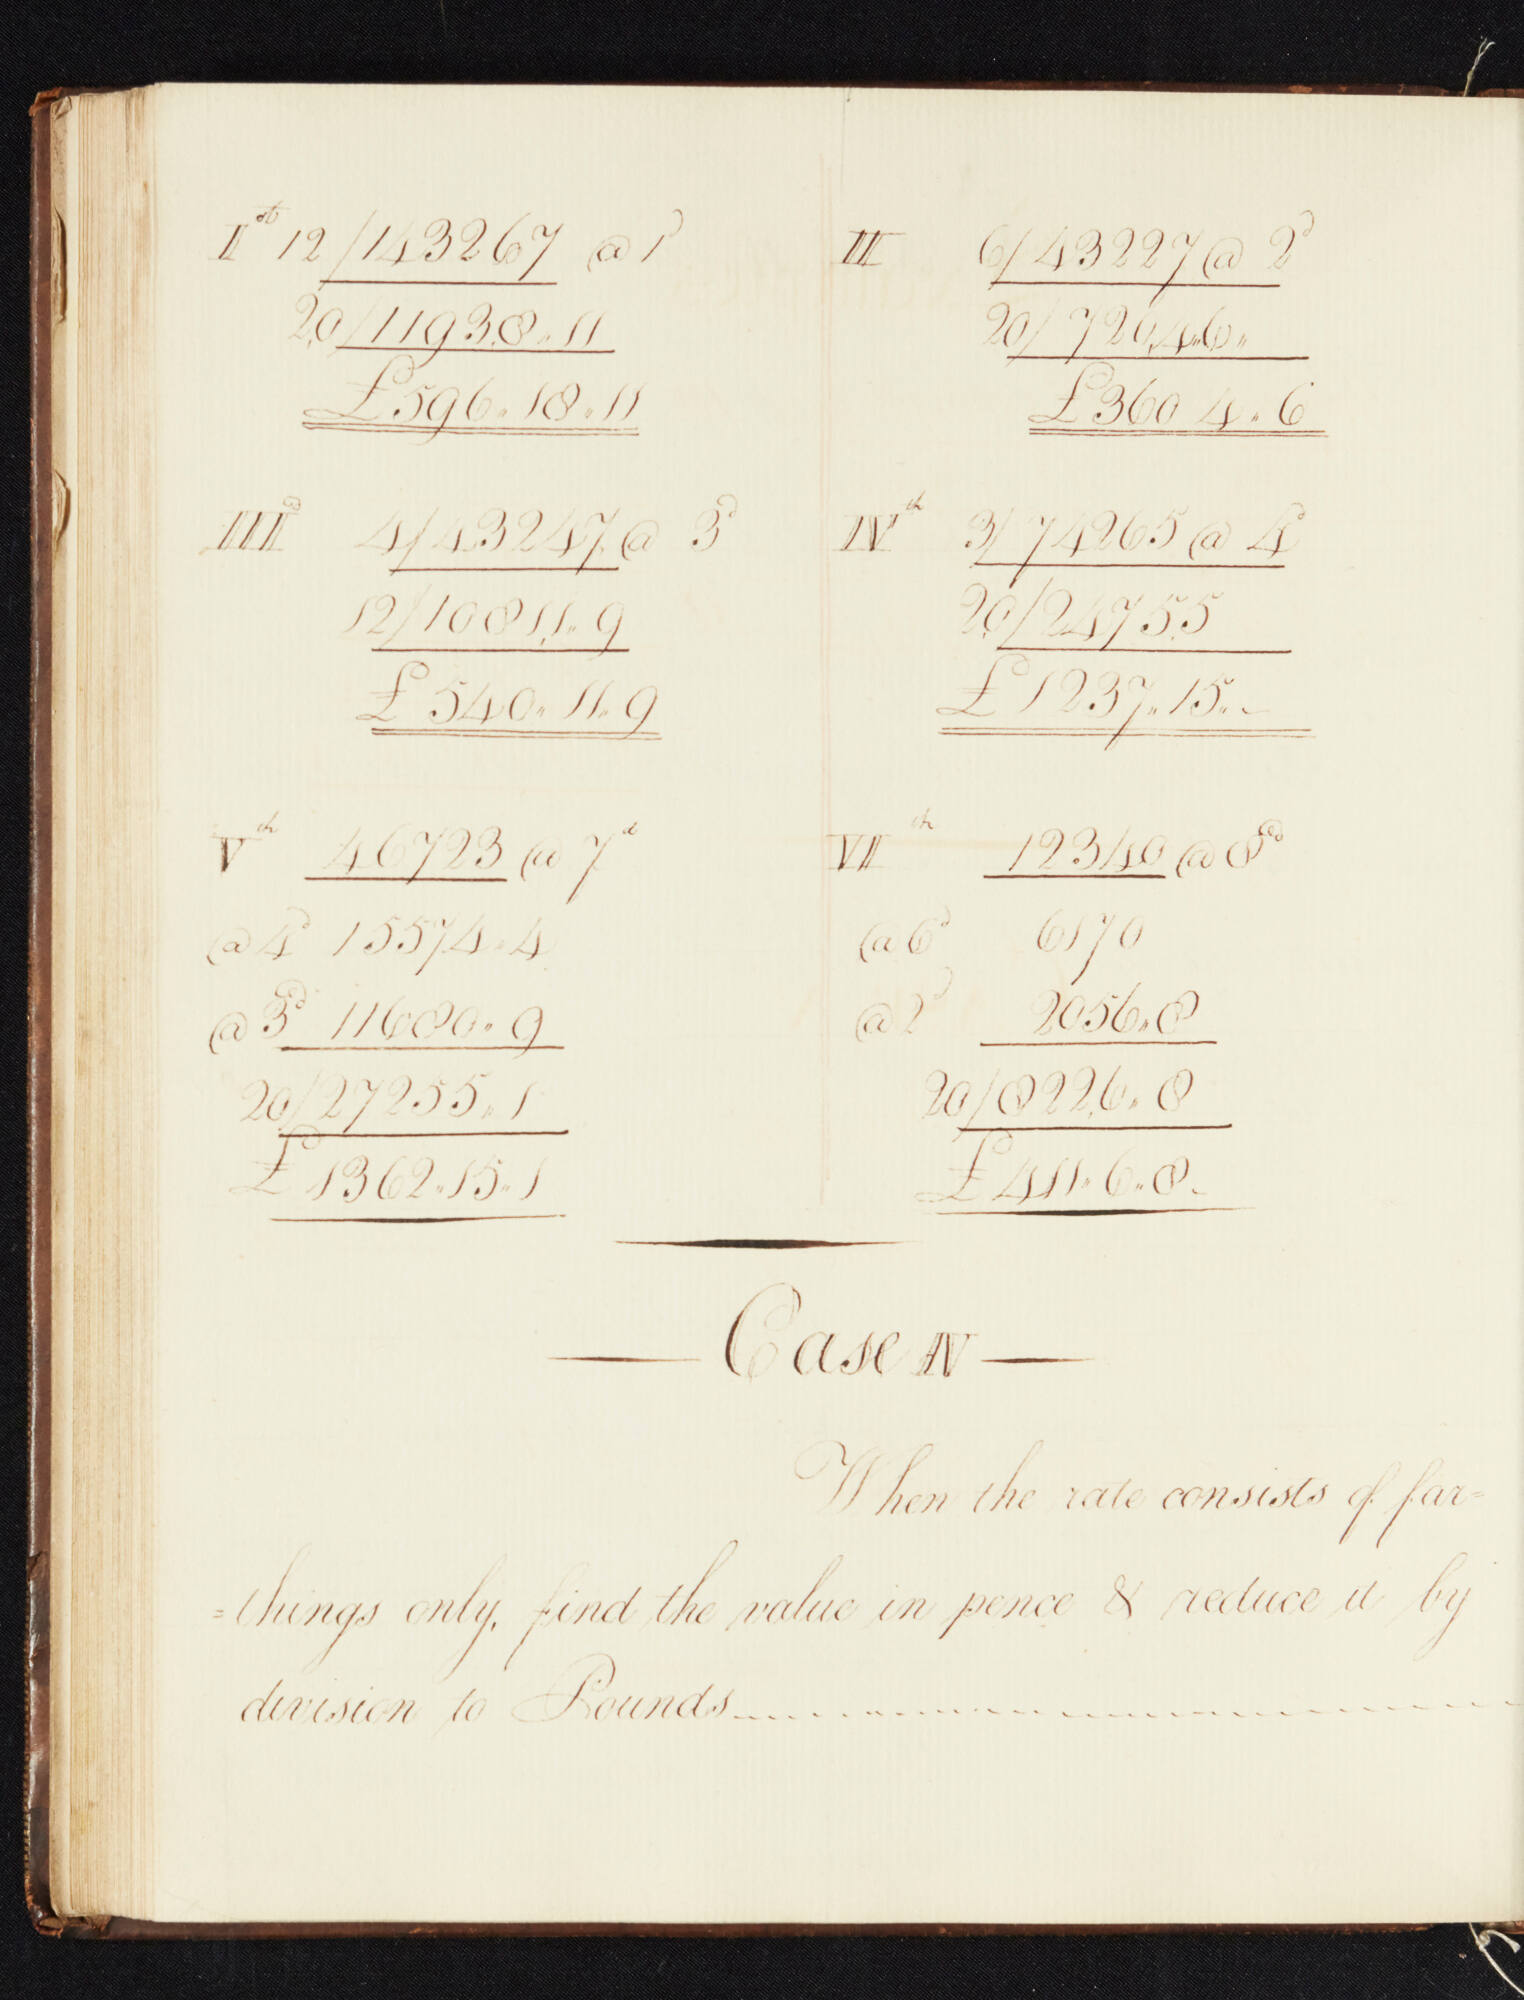 I st 12/143267 @ 1d
20/11938 " 11
£596 " 18 " 11
II 6/43227 @ 2d
20/7204 " 6 "
£360 4 " 6
IIId 4/43247 @ 3d
12/10811 " 9
£540 " 11 " 9
IVth 3/74265 @ 4d
20/24755
£1237 " 15 " -
Vth 46723 @ 7d
@ 4d 15574 " 4
@ 3d 11680 " 9
20/27255 " 1
£1362 " 15 " 1
VIth 12340 @ 8d
@ 6d 6170
@ 2d 2056 " 8
20/8226 " 8
£411 " 6 " 8 -
Case IV
When the rate consists of far=
=things only, find the value in pence & reduce it by
division to Pounds